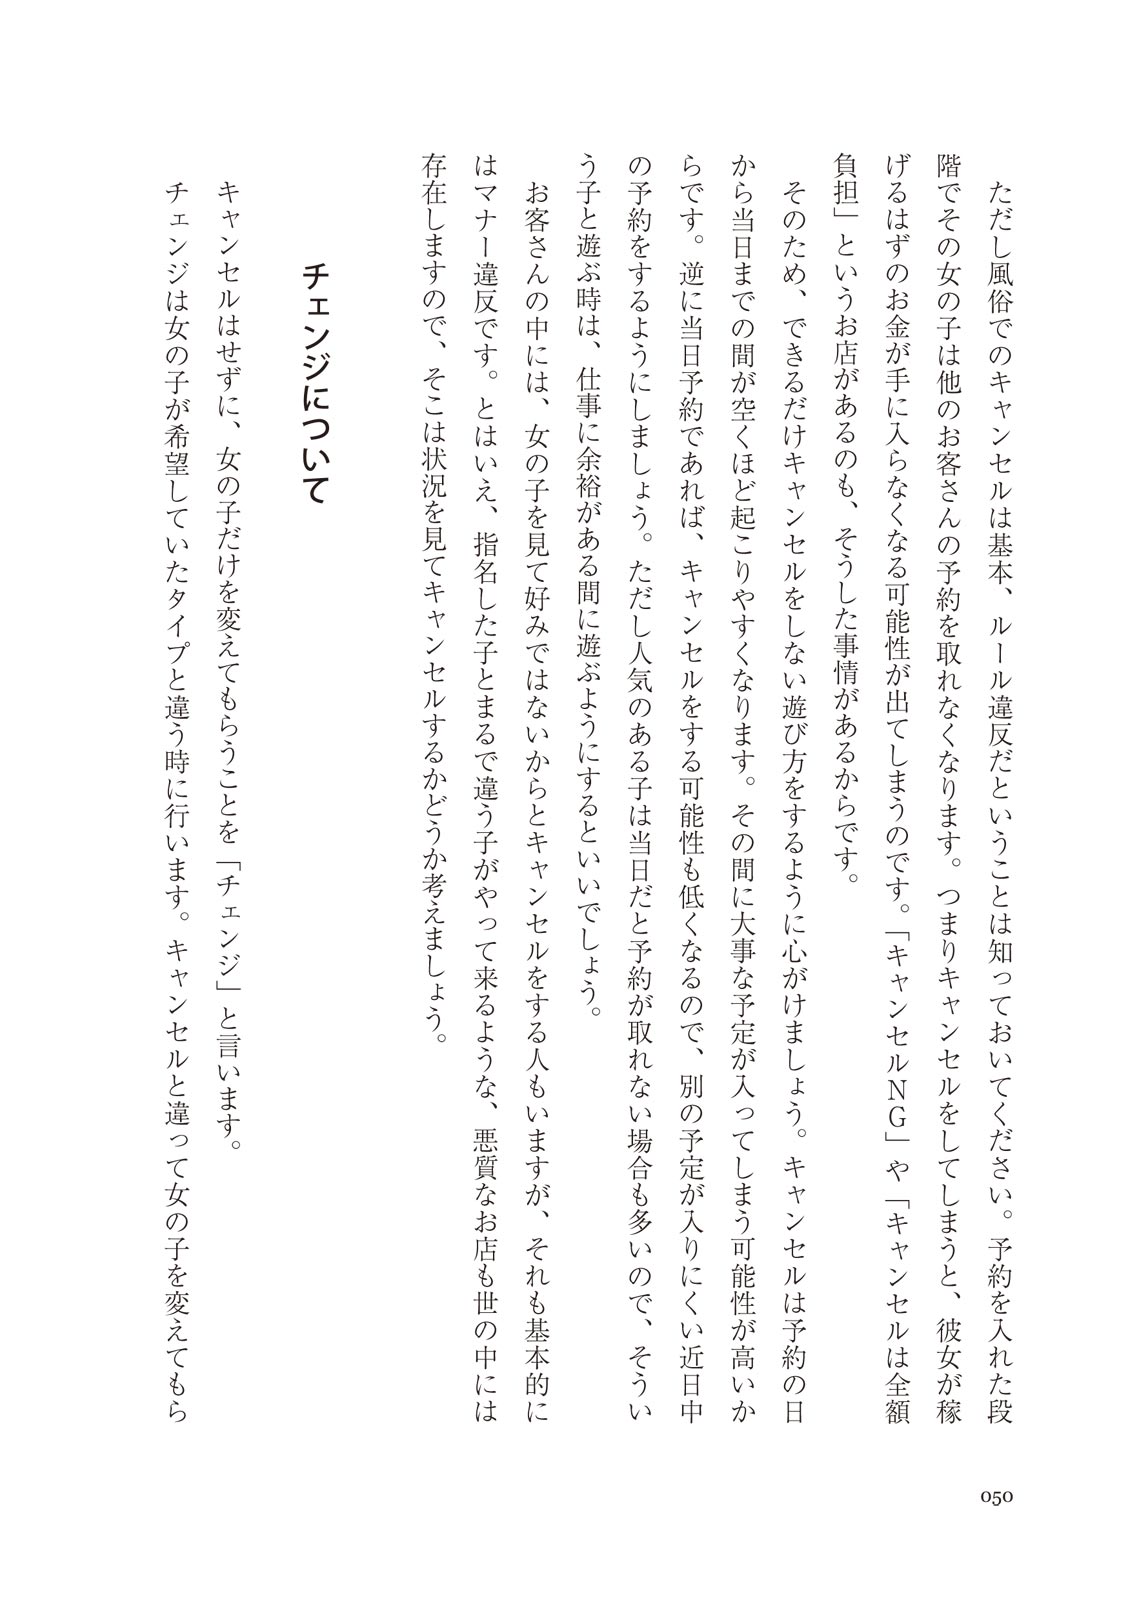 ただし風俗でのキャンセルは基本、ルール違反だということは知っておいてください。予約を入れた段
階でその女の子は他のお客さんの予約を取れなくなります。つまりキャンセルをしてしまうと、彼女が稼
げるはずのお金が手に入らなくなる可能性が出てしまうのです。「キャンセルNG」や「キャンセルは全額
負担」というお店があるのも、そうした事情があるからです。
そのため、できるだけキャンセルをしない遊び方をするように心がけましょう。キャンセルは予約の日
から当日までの間が空くほど起こりやすくなります。その間に大事な予定が入ってしまう可能性が高いか
らです。逆に当日予約であれば、キャンセルをする可能性も低くなるので、別の予定が入りにくい近日中
の予約をするようにしましょう。ただし人気のある子は当日だと予約が取れない場合も多いので、そうい
う子と遊ぶ時は、仕事に余裕がある間に遊ぶようにするといいでしょう。
お客さんの中には、女の子を見て好みではないからとキャンセルをする人もいますが、それも基本的に
はマナー違反です。とはいえ、指名した子とまるで違う子がやって来るような、悪質なお店も世の中には
存在しますので、そこは状況を見てキャンセルするかどうか考えましょう。
チェンジについて
キャンセルはせずに、女の子だけを変えてもらうことを「チェンジ」と言います。
チェンジは女の子が希望していたタイプと違う時に行います。キャンセルと違って女の子を変えてもら
050